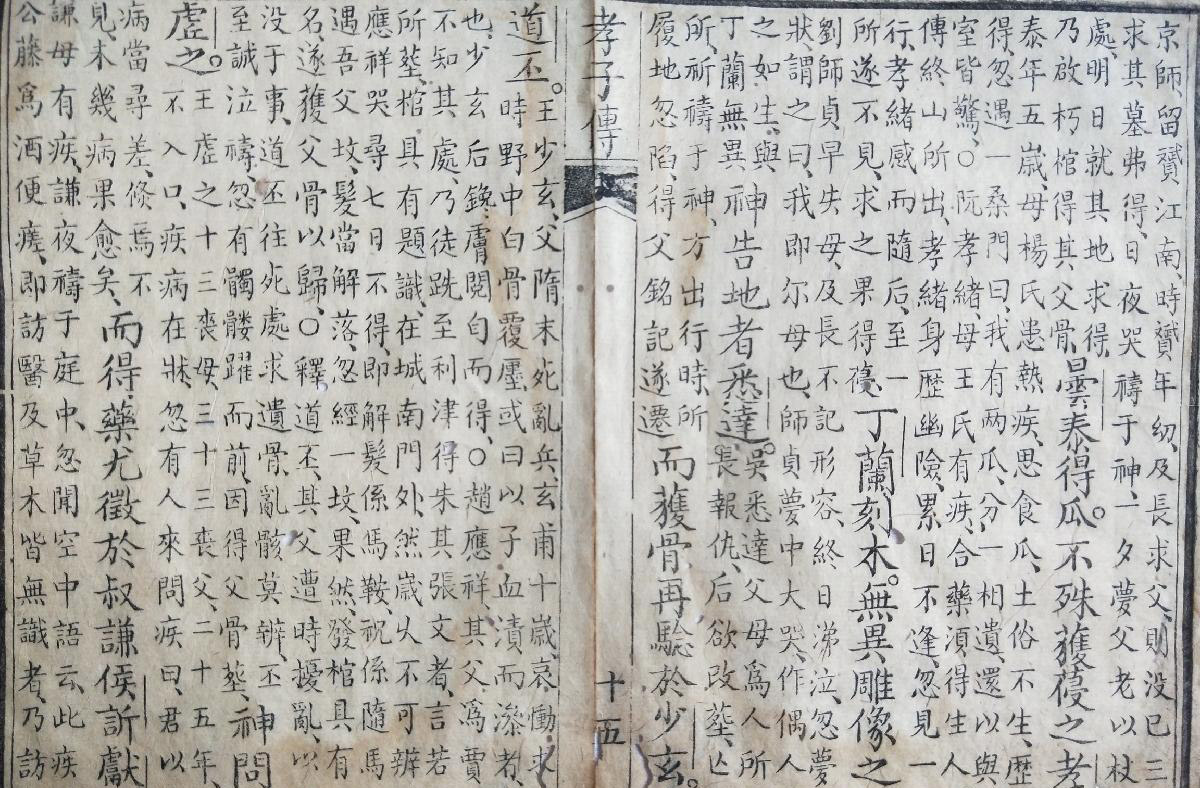 京師、留贇江南、時贇年幼、及長求父、則没已三
求其墓弗得、日夜哭禱于神、一夕夢父老以杖
處、明日就其地求得、
乃啟朽棺得其父骨、
曇泰得瓜。不殊獲葠之孝
泰年五歲、母楊氏患熱疾、思食瓜、土俗不生、歷
得、忽遇一桑門曰、我有两瓜、分一相遺、還以與
室皆驚、○阮孝緒、母王氏有疾、合藥湏得生人
傳終山所出、孝緒身歷幽險、累日不逢、忽見一
行、孝緒感而隨后、至一
所遂不見、求之果得葠、
丁蘭刻木。無異雕像之
劉師貞早失母、及長不記形容、終日涕泣、忽夢
狀、謂之曰、我即尔母也、師貞夢中大哭、作偶人
之如生、與
丁蘭無異
神告地者悉達。
吳悉達父母爲人所
長報仇、后欲改塟、亡
所、祈禱于神、方出行時、所
履地忽陷、得父銘記遂遷
而獲骨再驗於少玄。
孝子傳 十五
道丕。
王少玄、父隋末死亂兵、玄甫十歲哀慟求
時野中白骨覆壓、或曰以子血漬而滲者、
也、少玄后鑱膚閱旬而得、○趙應祥、其父爲賈
不知其處、乃徒跣至利津得朱其張文者、言若
所塟、棺具有題識、在城南門外、然歲火不可辨
應祥哭尋七日不得、即解髮係馬鞍祝係隨馬
遇吾父坟、髮當解落、忽經一坟、果然、發棺具有
名遂獲父骨以歸、○釋道丕、其父遭時擾亂、以
没于事、道丕往死處求遺骨、亂骸莫辨、丕
至誠泣禱、忽有髑髏躍而前、因得父骨塟、
神問
虛之。
王虛之十三喪母、三十三喪父、二十五年、
不入口、疾病在牀、忽有人來問疾曰、君以
病當尋差、條焉不
見、未幾病果愈矣、
而得藥尤徵於叔謙俟訢獻
謙母有疾、謙夜禱于庭中、忽聞空中語云、此疾
公藤爲酒便瘥、即訪醫及草木皆無識者、乃訪